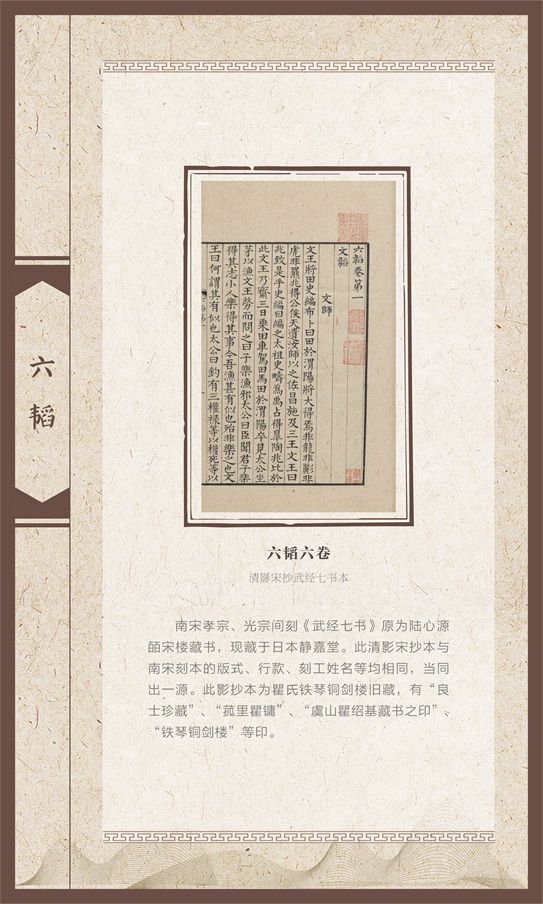 六
韬
六韜卷第一
文韜
文師
文王將田史編布卜曰田於渭陽將大得焉非龍非彲非
虎非羆兆得公侯天遺汝師以之佐昌施及三王文王曰
兆致是乎史編曰編之太祖史疇為禹占得臯陶兆比於
此文王乃齋三日乗田車駕田馬田於渭陽卒見太公坐
茅以漁文王勞而問之曰子樂漁邪太公曰臣聞君子樂
得其志小人樂得其事今吾漁甚有似也殆非樂之也文
王曰何謂其有似也太公曰釣有三權禄等以權死等以
六韬六卷
清影宋抄武经七书本
南宋孝宗、光宗间刻《武经七书》原为陆心源
皕宋楼藏书，现藏于日本静嘉堂。此清影宋抄本与
南宋刻本的版式、行款、刻工姓名等均相同，当同
出一源。此影抄本为瞿氏铁琴铜剑楼旧藏，有“良
士珍藏”、“菰里瞿镛”、“虞山瞿绍基藏书之印”、
“铁琴铜剑楼”等印。